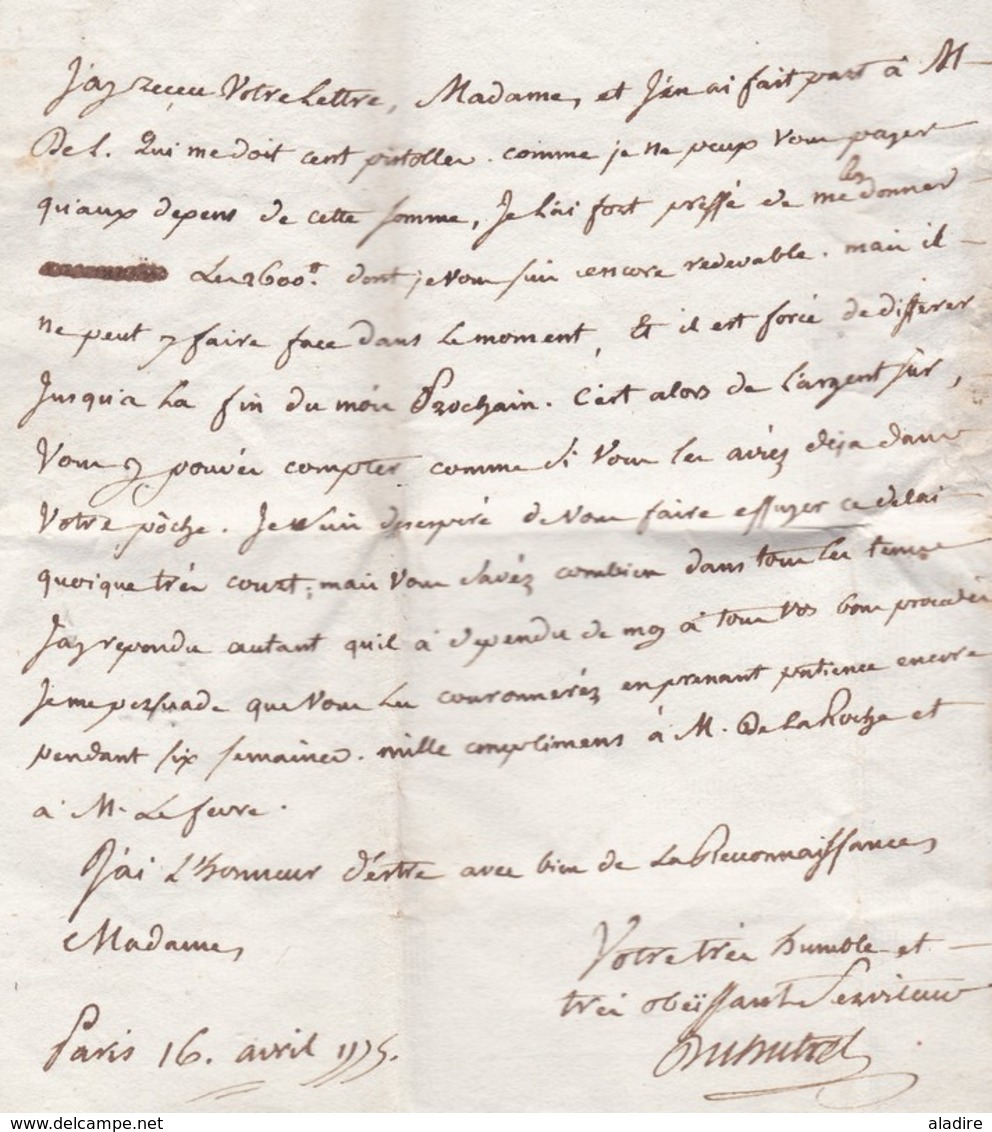 J'ay reçeu Votre Lettre, Madame, et J'en ai fait part à M
De L. Qui me doit cent pistolles. comme je ne peux vous payer
qu'aux depens de cette somme, Je L'ai fort pressé de me les donner
Les 2600tt. dont je vous suis encore redevable. mais il
ne peut y faire face dans Le moment, Et il est forcé de differer
Jusqu'a La fin du mois Prochain. C'est alors de L'argent sûr,
Vous y pouvés compter comme si Vous les aviés deja dans
Votre pôche. Je suis desesperé de vous faire essuyer ce delai
quoique très court; mais Vous savés combien dans tous les temps
J'ay repondu autant qu'il à dependu de moy à tous vos bons procedés
Je me persuade que vous les couronnerés en prenant patience encore
pendant six semaines. mille complimens à M. De La Roche et
à M. Lefevre.
J'ai L'honneur d'être avec bien de La Reconnaissance,
Madame,
Votre très humble et
très obeïssant Serviteur
Paris 16. avril 1775.
aladire